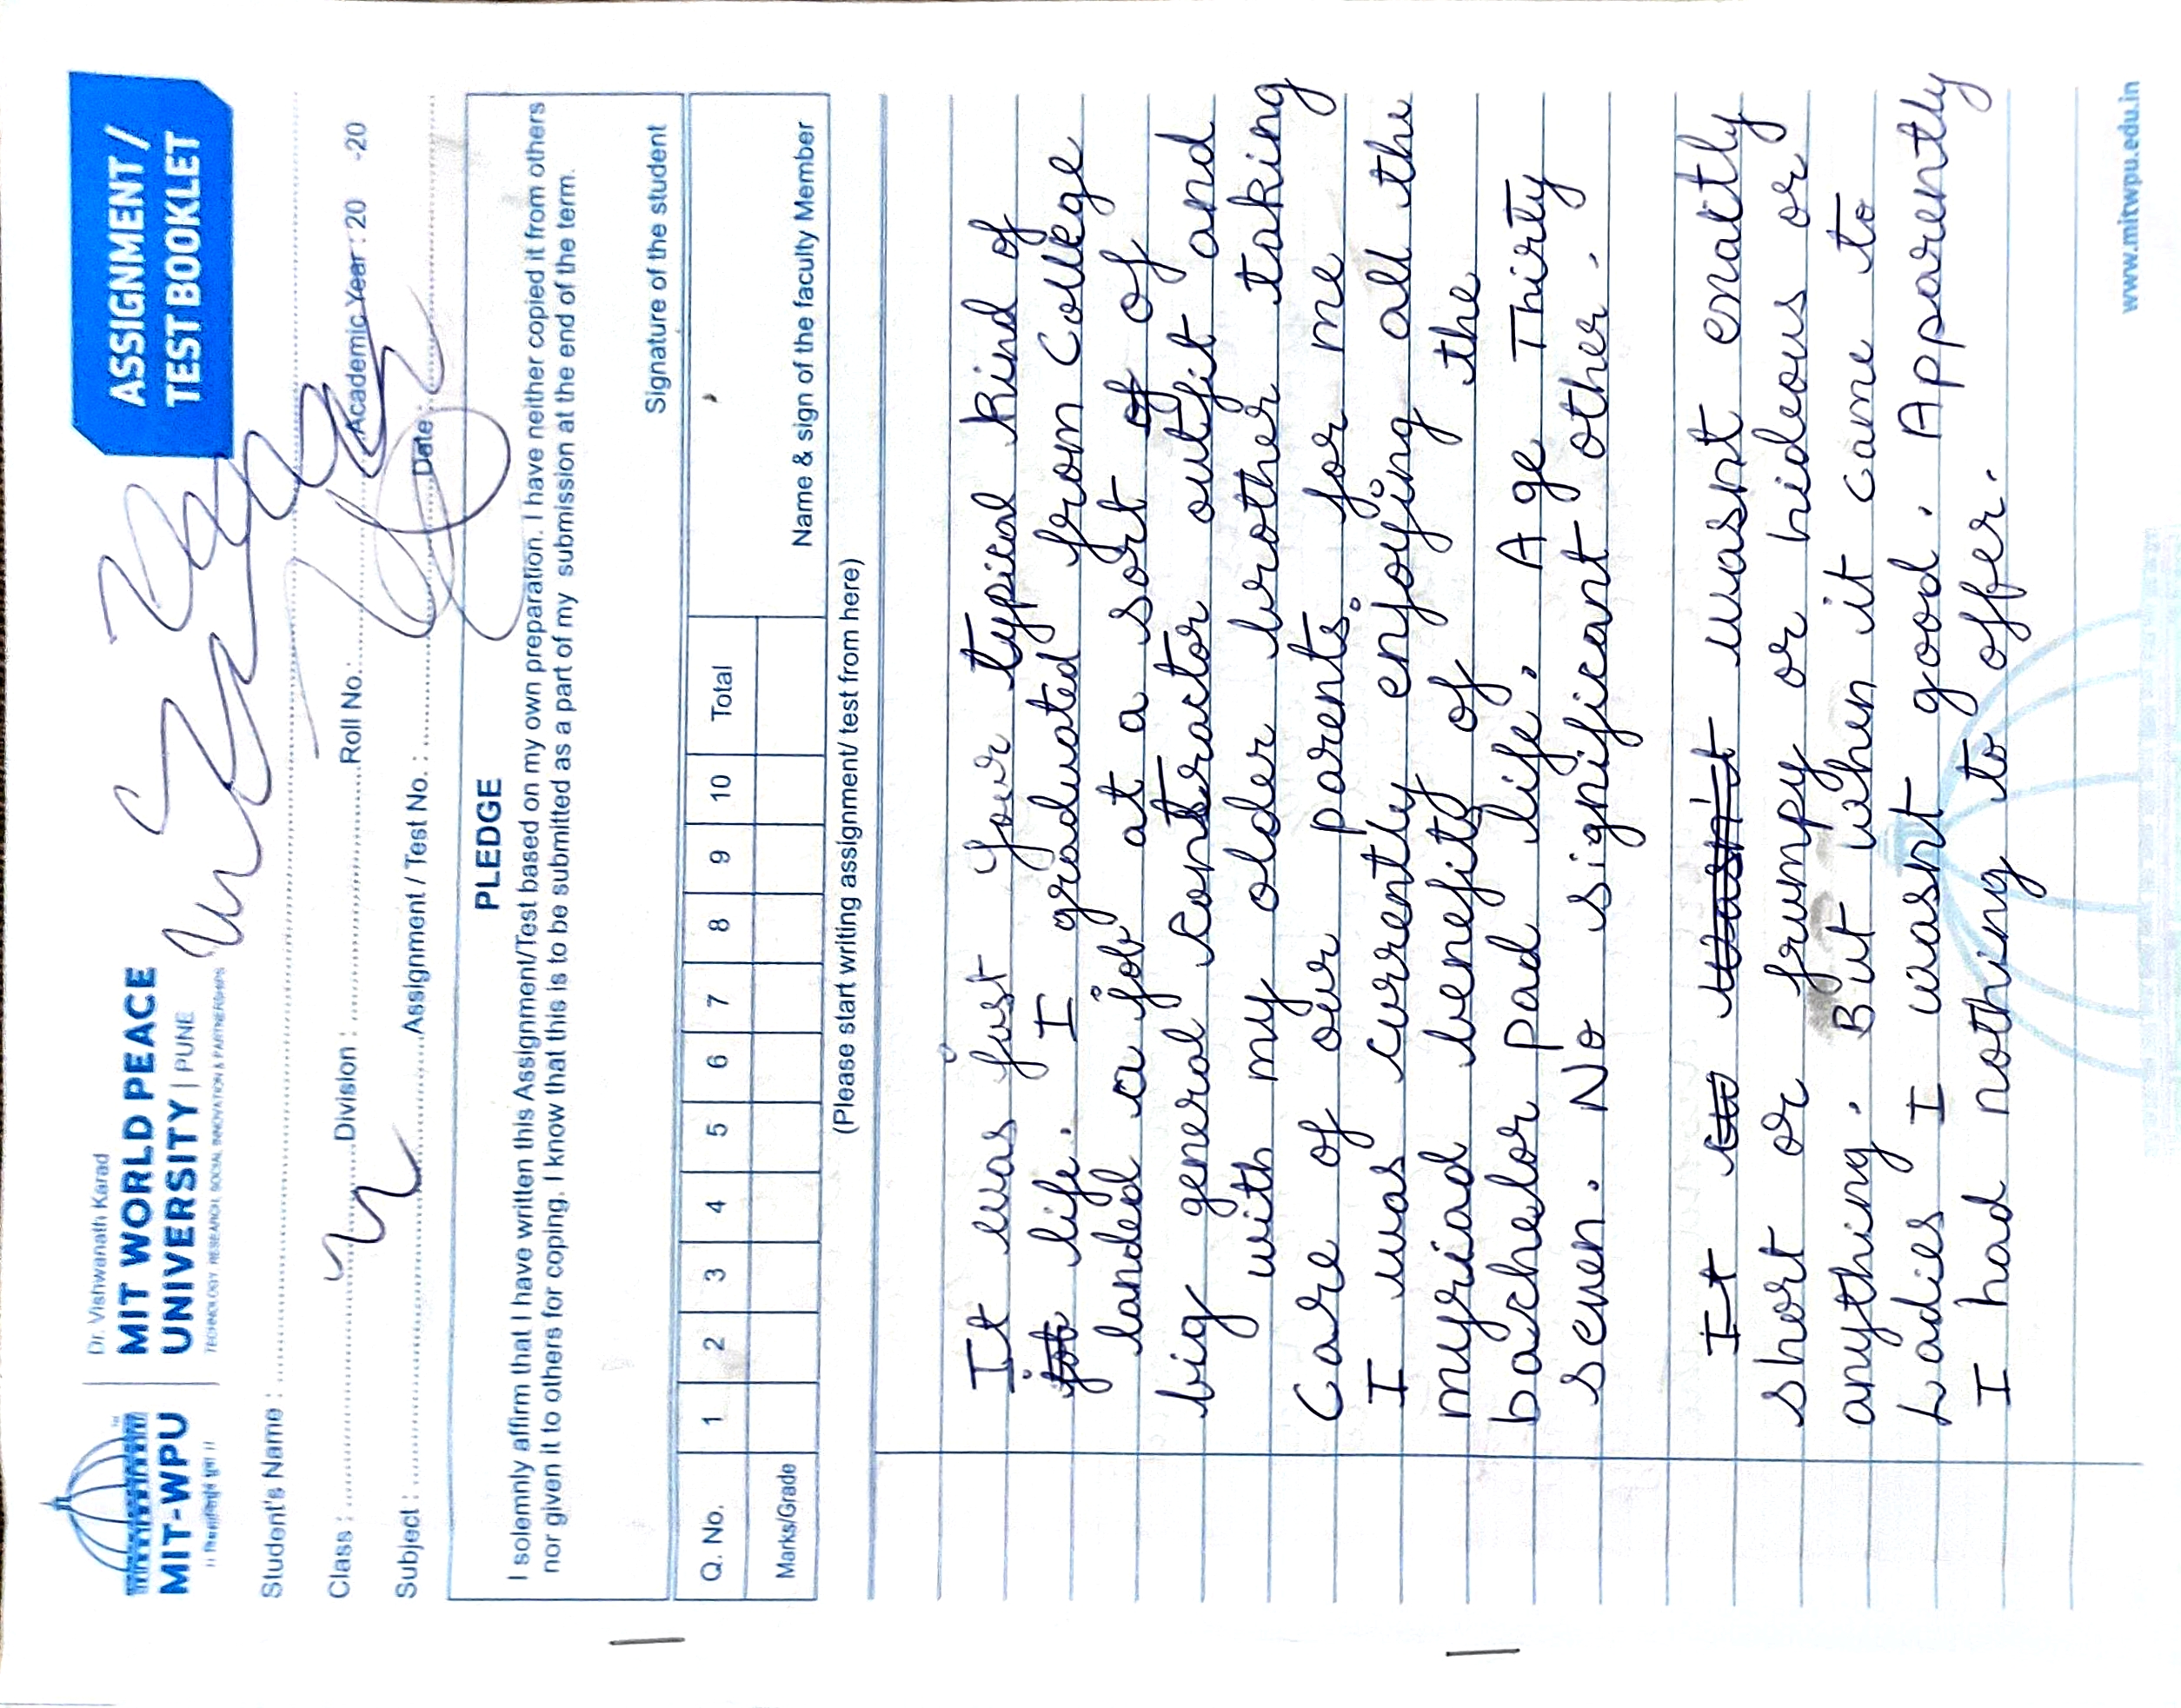 Dr. Vishwanath Karad
MIT WORLD PEACE
UNIVERSITY | PUNE
TECHNOLOGY, RESEARCH, SOCIAL INNOVATION & PARTNERSHIPS
MIT-WPU
ASSIGNMENT /
TEST BOOKLET
Student's Name :
Class : Division : Roll No.: Academic Year : 20 -20
Subject : Assignment / Test No. : Date :
PLEDGE
I solemnly affirm that I have written this Assignment/Test based on my own preparation. I have neither copied it from others
nor given it to others for coping. I know that this is to be submitted as a part of my submission at the end of the term.
Signature of the student
Q. No. 1 2 3 4 5 6 7 8 9 10 Total
Marks/Grade
Name & sign of the faculty Member
(Please start writing assignment/ test from here)
It was just your typical kind of
job life. I graduated from College
landed a job at a sort of of
big general contractor outfit and
with my older brother taking
Care of our parents. for me
I was currently enjoying all the
myriad benefits of the
bachelor pad life. Age Thirty
seven. No significant other.
It w wasn't wasnt exactly
short or frumpy or hideous or
anything. But when it came to
Ladies I wasnt good. Apparently
I had nothing to offer.
www.mitwpu.edu.in